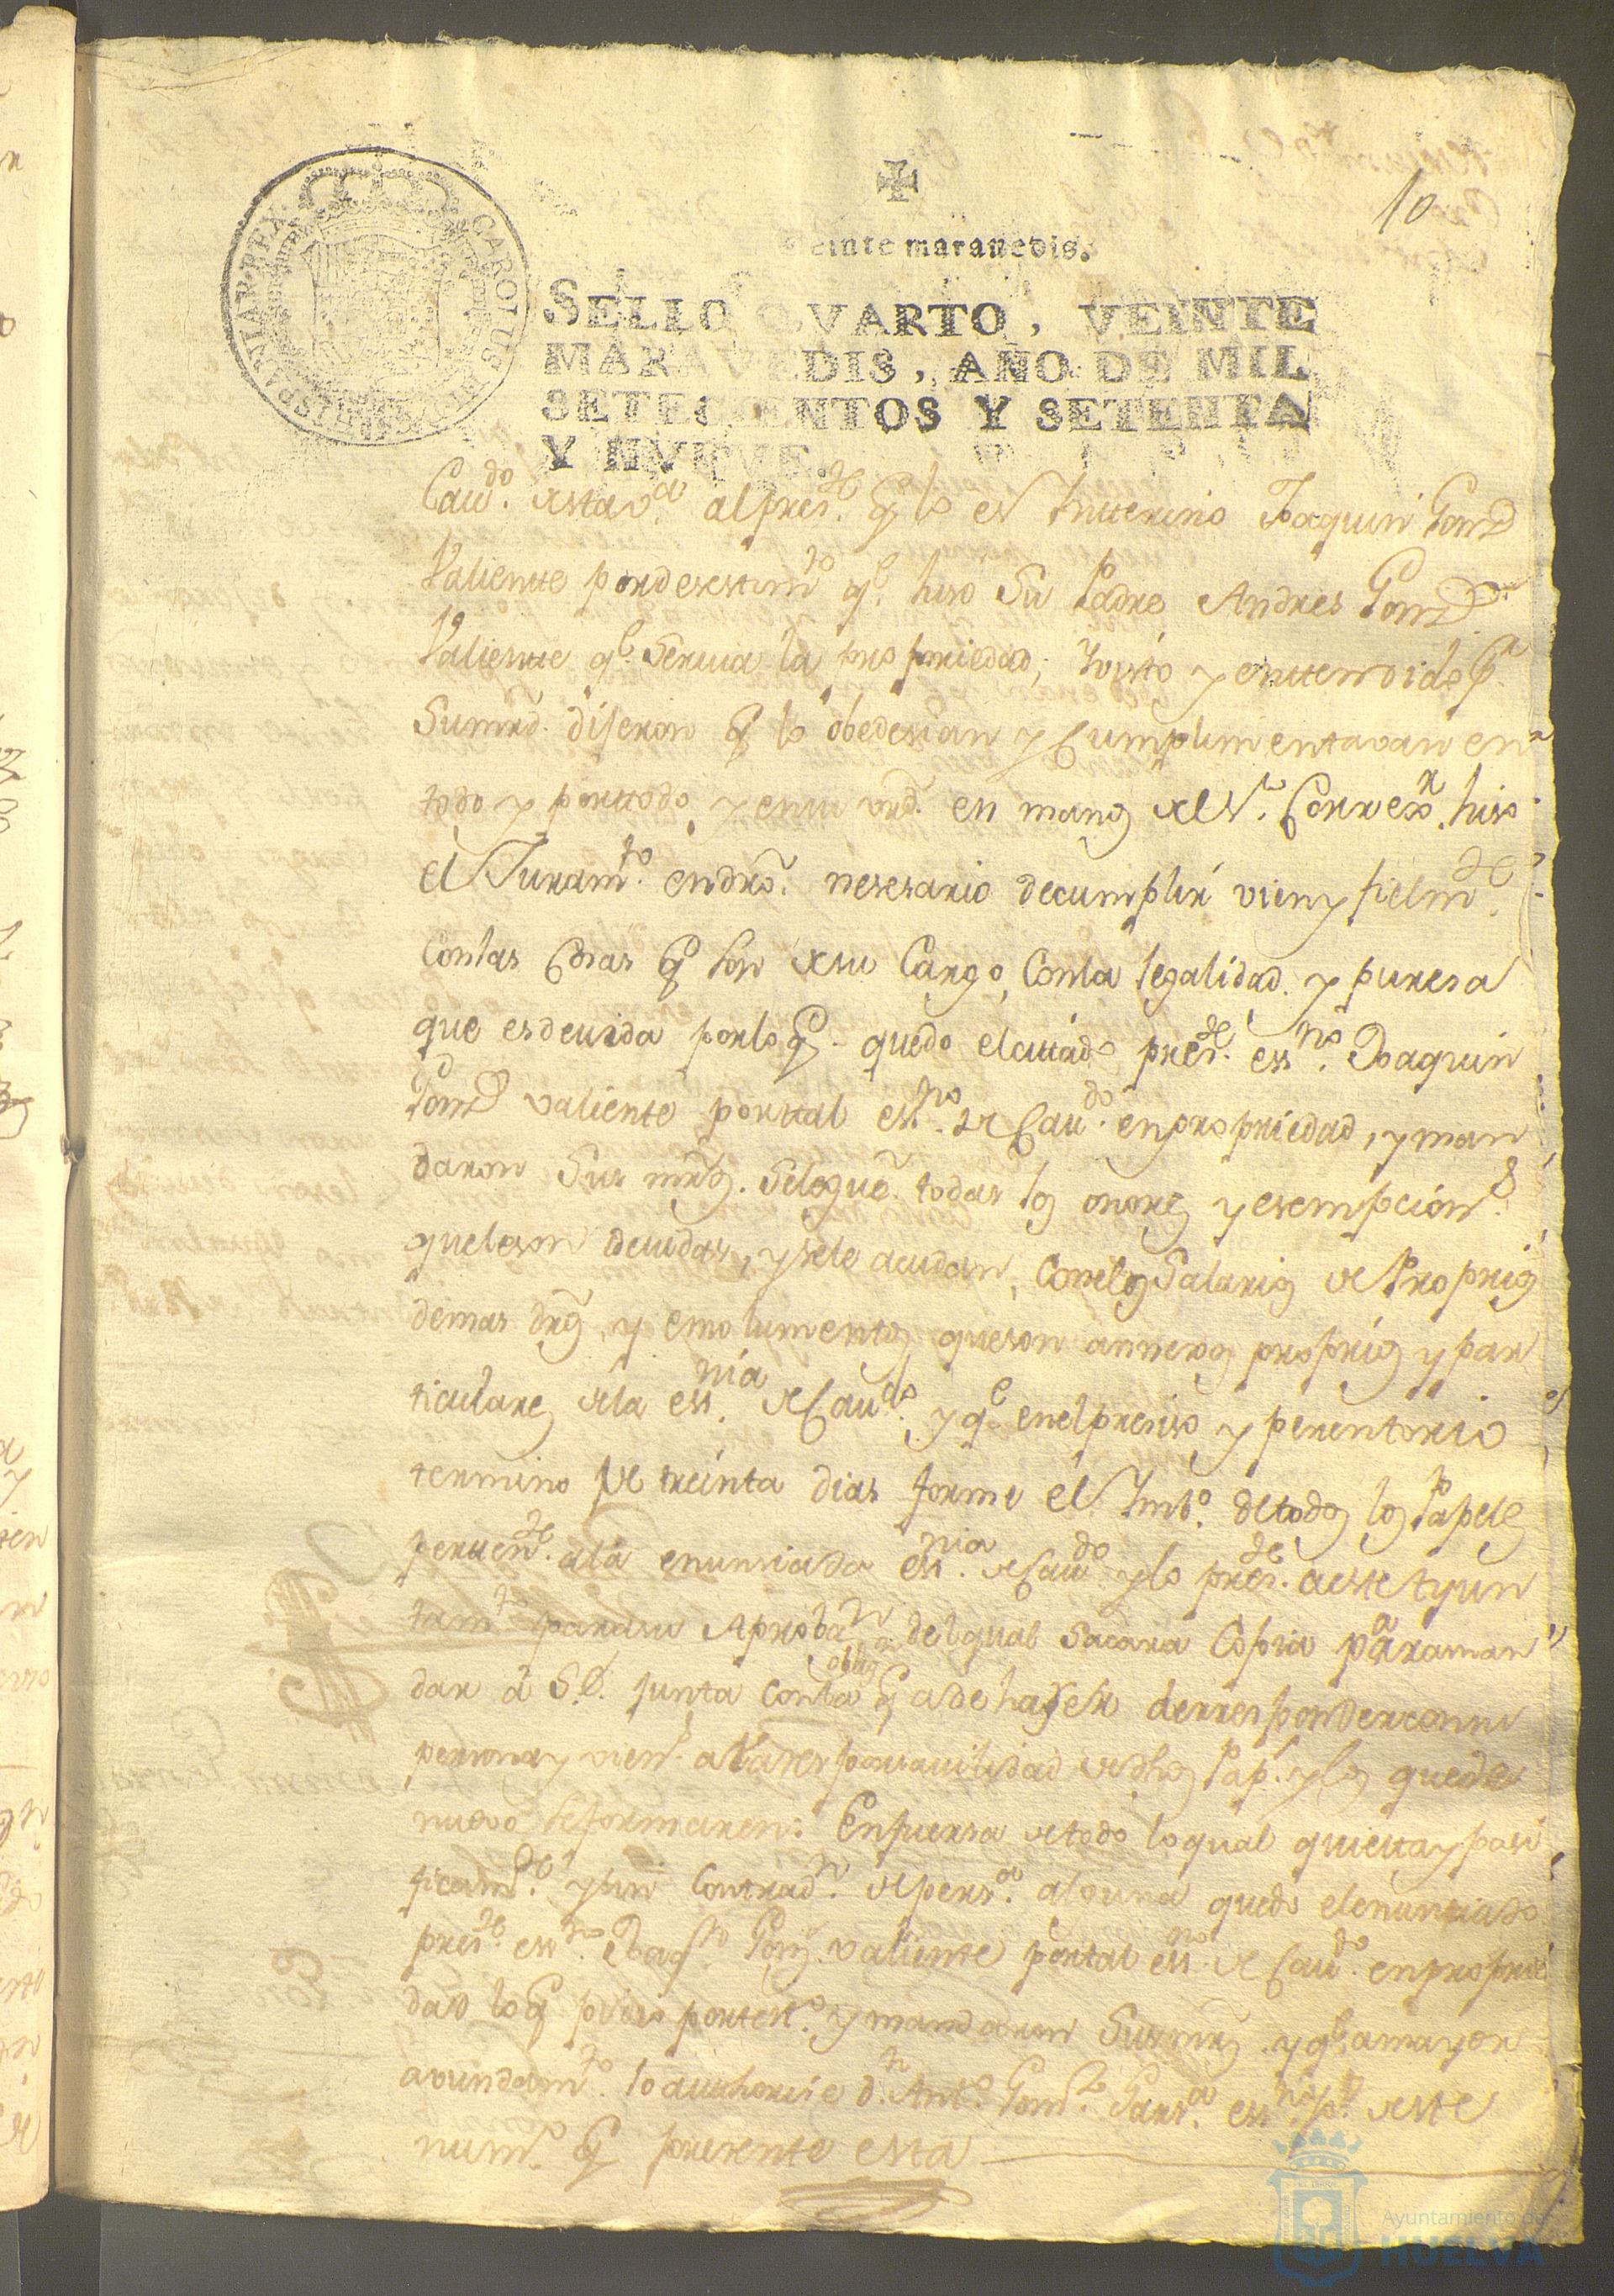 10
Veinte maravedis.
CAROLUS HISPANIAR. REX.
SELLO QVARTO, VEINTE
MARAVEDIS, AÑO DE MIL
SETECIENTOS Y SETENTA
Y NVEVE.
Cavdo. desta va. al preste. q lo es Ynterino Joaquin Gomz
Valiente por desestimto qe. hiso Su Padre Andres Gomz
Valiente qe. Servia la propriedad; Visto y entendido pr.
Sumrd. dijeron q lo obedesian y Cumplimentavan en
todo y portodo, y en su vrd. en manos del Sr. Correxor. hiso
el Juramto. endro. nesesario decumplir vien y fielmte.
Contas Cosas q son desu Cargo, Conla legalidad y puresa
que esdevida porlo q. quedo elcitado preste. essno. Joaquin
Gomz valiente portal essno. de Cavdo. enpropriedad, y man
daron Sus mrds. Selegue. todas los onores y esempcions.
queleson devidas, y sele acudan, Conelos Salarios de Proprios
demas dros, y emolumentos queson annexos proprios y par
ticulares dela essnia. de Cavdo. y qe. enelpresiso y perentorio
termino de treinta dias forme el Ynvo. detodos los Papeles
pertente. ala enunsiada essnia. de Cavdo. y lo preste. aeste Ayun
tamto. parasu Aprobasn. delqual Sacara Copia para man
dar a S.E. junta Conla obligon q adehaser derresponderconsu
persona y viens. alaresponsavilidad dedhos Pap. y los quede
nuevo seformaren: Enfuersa detodo loqual quieta y pasi
ficamte. y sin Contradn. depersoa. alguna quedo elenunsiado
preste. essno. Joaqn. Gomz. valiente portal essno. de Cavdo. enproprie
dad loq pidio portesto. y mandaron Susmrds. y qe. amayor
avundamto. lo authorise dn. Anto. Gomz. Garsa. essno. pp. deste
numo. q presente esta
Ayuntamiento de
HUELVA